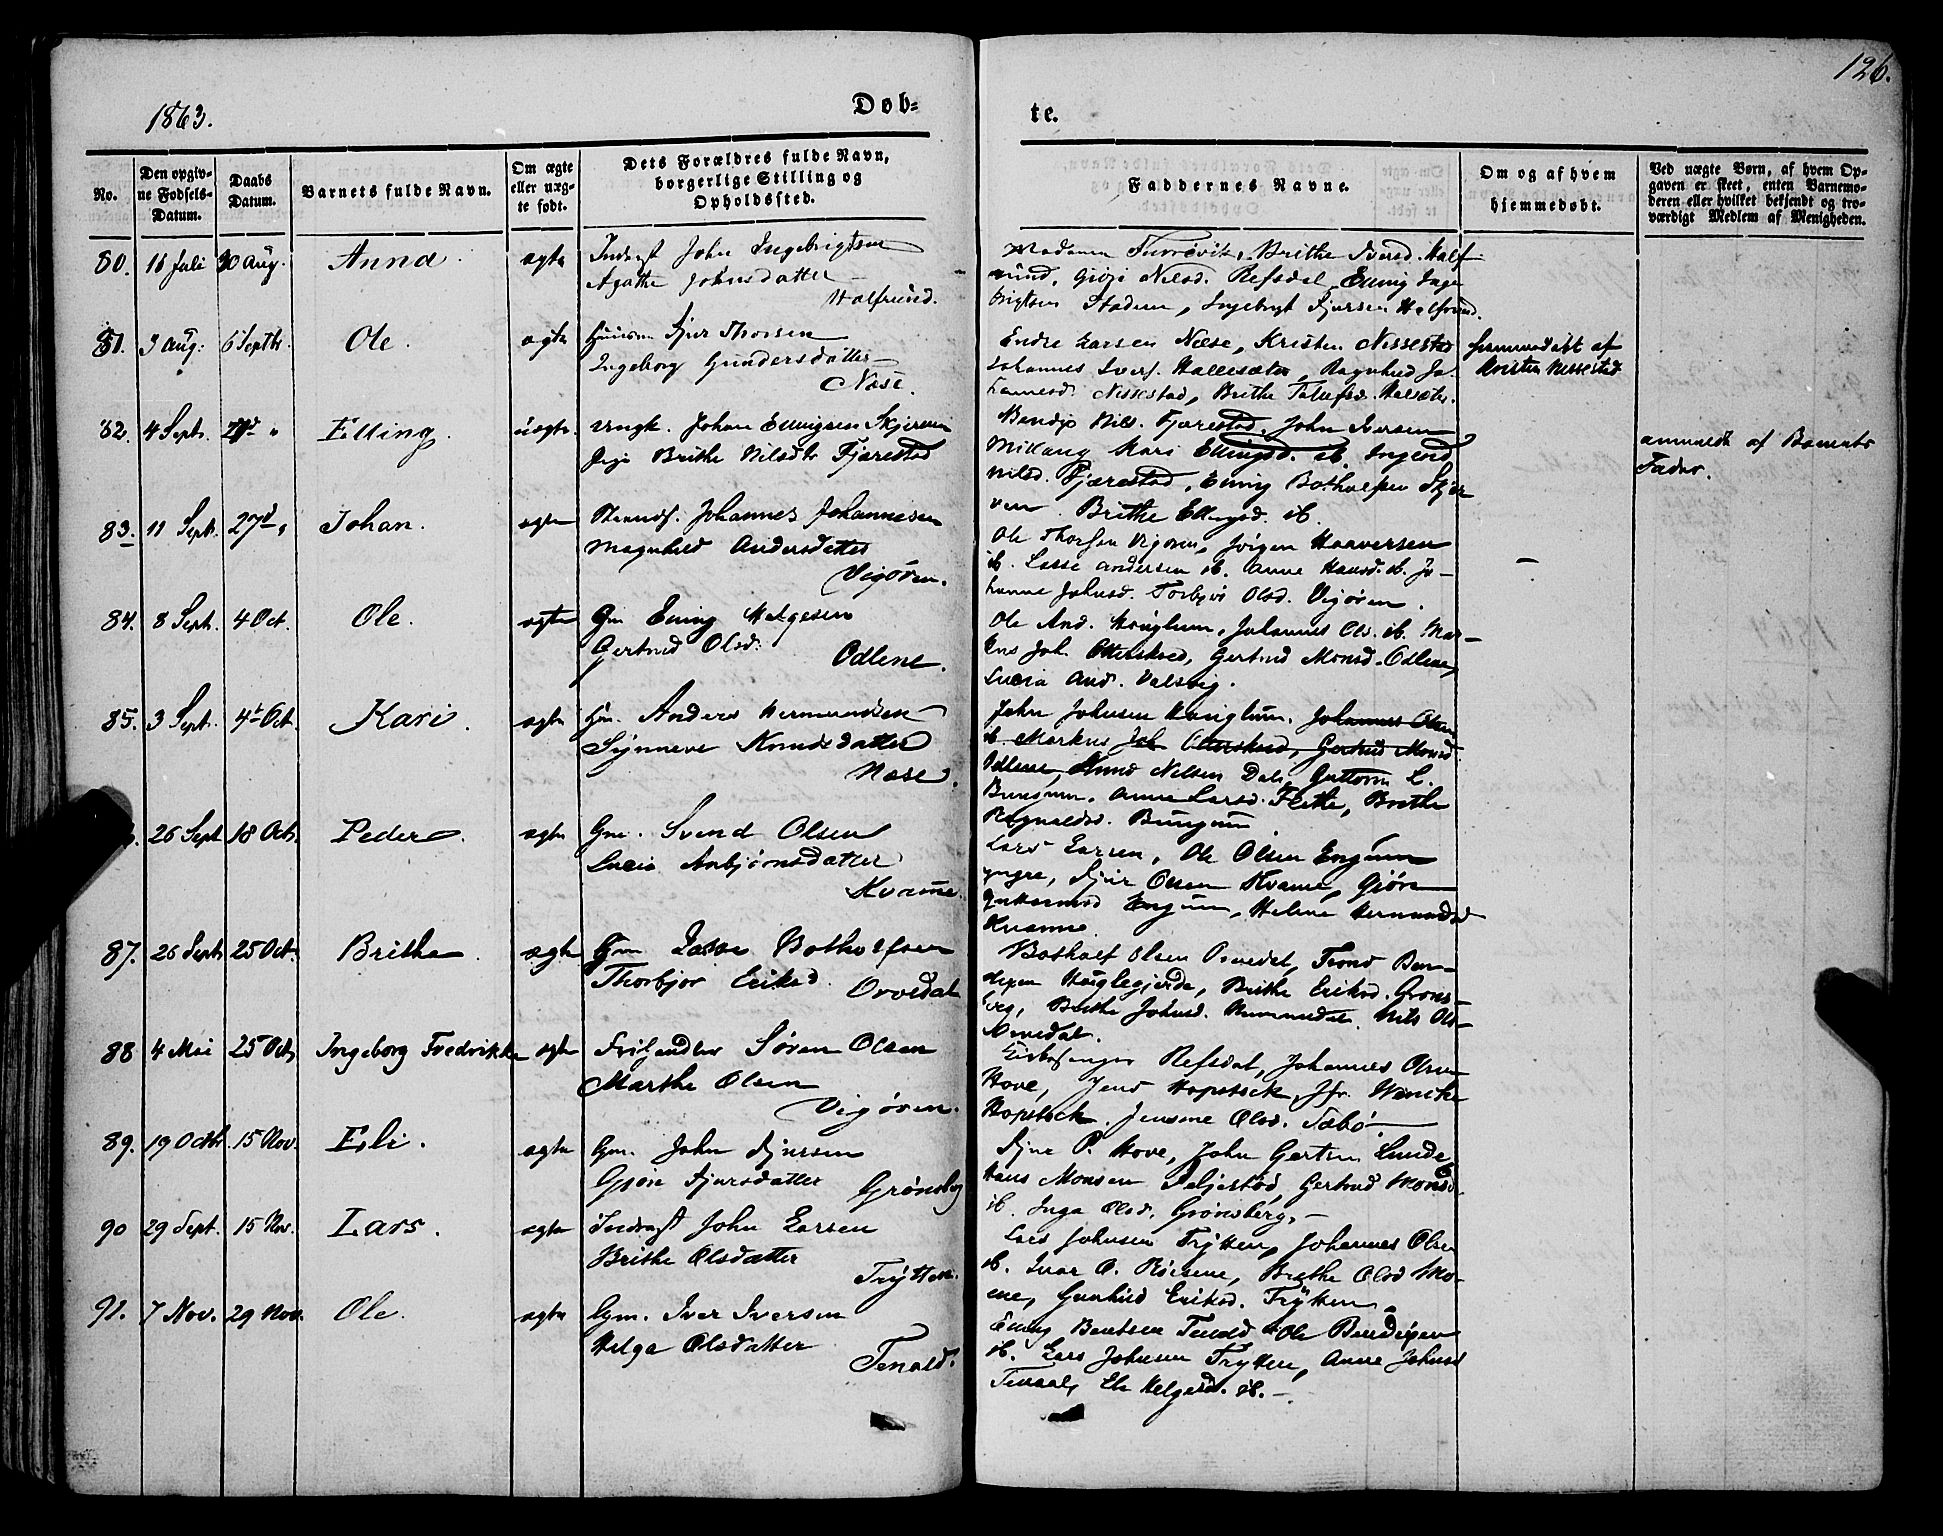 126.
1863.
Døb-
te.
No.
Den opgiv-
ne Fødsels-
Datum.
Daabs
Datum.
Barnets fulde Navn.
Om ægte
eller uæg-
te født.
Dets Forældres fulde Navn,
borgerlige Stilling og
Opholdssted.
Faddernes Navne.
Om og af hvem
hjemmedøbt.
Ved uægte Børn, af hvem Op-
gaven er skeet, enten Barnemo-
deren eller hvilket bekjendt og tro-
værdigt Medlem af Menigheden.
80. 16 Juli 30 Aug. Anna ægte John Ingebrigtsen
Agathe Johnsdatter
Brithe Iversd. Half-
Nilsd. Refsdal, Elling Inge
brigtsen Ingebrigt Sjursen Halfrund.
81. 3 Aug. 6 Septbr. Ole. ægte Sjur Thorsen
Ingeborg Gundersdatter
Næse.
Endre Larsen Næse, Kristen Nissestad
Johannes Ivers. Hallesæter, Ragnhild Jo-
hannesd. Nissestad, Brithe
hjemmedøbt af
Kristen Nissestad
82. 4 Septr. Elling. uægte. Ungk. Johan Ellingsen Skjerven
Brithe Nilsdtr Fjærestad
Nils. Fjærestad, John Iversen
Kari Ellingsd. ib. Ingeborg
Nilsd. Fjærestad, Elling Botholfsen Skjer-
ven. Brithe Ellingsd. ib.
anmeldt af Barnets
Fader.
83. 11 Sept. 27d Johan. ægte Johannes Johannesen
Magnhild Andersdatter
Vigøren.
Ole Thorsen Vigøren, Jørgen Haaversen
ib. Lasse Andersen ib. Anne Hansd. ib. Jo-
hanne Johnsd. Torbjør Olsd. Vigøren.
84. 8 Sept. 4 Oct. Ole. ægte Gm Elling Helgesen
Gertrud Olsd.
Odlene.
Ole And. Hønglum, Johannes Ols. ib. Mar-
kus Joh. Otterskred, Gertrud Monsd. Odlene,
Lucia And. Valsvig.
85. 3 Sept. 4t Oct. Kari. ægte Anders Hermundsen
Synneve Knudsdatter
Næse.
John Johnsen Hønglum. Johannes Olsen
ib. Markus Joh Otterskred, Gertrud Monsd
Odlene, Knud Nilsen Dale, Guttorm L.
Bungum. Anne Larsd. Flethe, Brithe
Ragnaldsd. Bungum
26 Sept 18 Oct. Peder. ægte Gm. Svend Olsen
Lucia Anbjørnsdatter
Kvamme.
Lars Larsen, Ole Olsen Engum
yngre, Sjur Olsen Kvame, Gjøri
Engum, Helene Hermundsd
Kvamme.
87. 26 Sept 25 Oct. Brithe. ægte Gm Lasse Botholfsen
Thorbjør Eriksd.
Orvedal
Botholf Olsen Orvedal, Trond Ben-
dixen Høiglegjerde, Brithe Eriksd. Grøns-
berg, Brithe Johnsd. Nils Ols-
Orvedal.
88 4 Mai 25 Oct. Ingeborg Fredrikke ægte Søren Olsen
Marthe Olsen
Vigøren.
Refsdal, Johannes Olsen
Hove, Jens Hopstock, Jfr. Wencke
Hopstock. Jensine Olsd. Tæbø.
89. 19 Octbr. 15 Nov. Eli. ægte Gm. John Sjursen
Gjøri Sjursdatter
Grønsberg
Sjur P. Hove, John Gertsen Lunde
Hans Monsen Seljestad, Gertrud Monsd.
ib. Inga Olsd. Grønsberg.
90 29 Sept. 15 Nov. Lars. ægte Inderst John Larsen
Brithe Olsdatter
Trytten.
Lars Johnsen Trytten, Johannes Olsen
ib. Ivar O. Brithe Olsd. Mo-
ene, Gunhild Eriksd. Trytten.
91. 7 Nov. 29 Nov. Ole. ægte Gm. Iver Iversen
Helga Olsdatter
Tenold.
Elling Bentsen Tenold Ole Bendixen
ib. Lars Johnsen Trytten, Anna Johnsd
Tenaal, Eli Helgesd. ib.